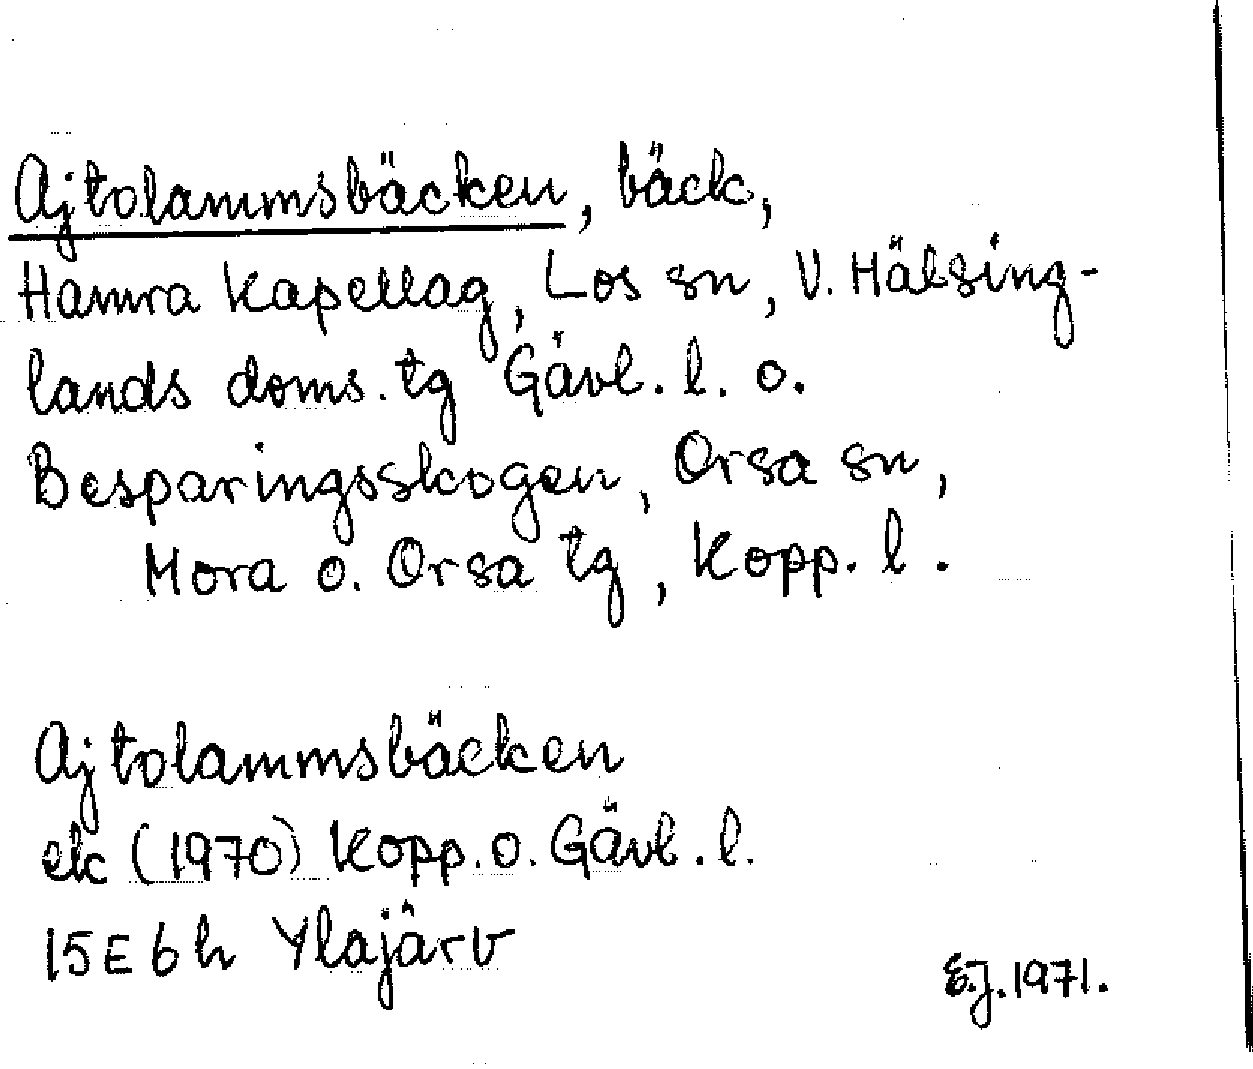 Ajtolammsbäcken, bäck,
Hamra kapellag, Los sn, V. Hälsing-
lands doms. tg Gävl. l. o.
Besparingsskogen, Orsa sn,
Mora o. Orsa tg, Kopp. l.
Ajtolammsbäcken
ek (1970) Kopp. o. Gävl. l.
15E 6h Ylajärv
E.J. 1971.